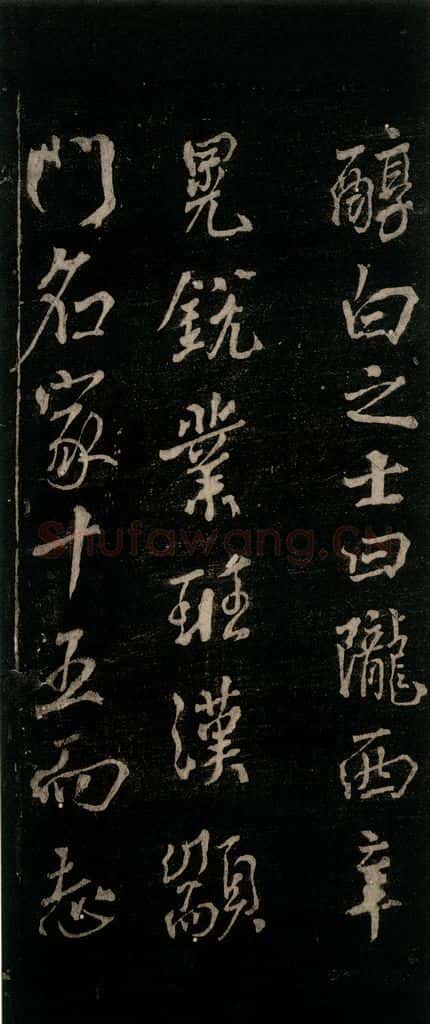 醇白之士曰隴西辛
晃銳業班漢顓
門名家十五而志
Shufawang.CN